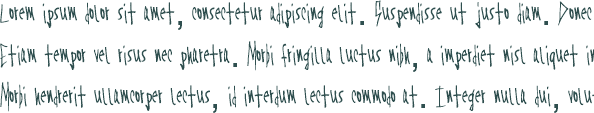 Lorem ipsum dolor sit amet, consectetur adipiscing elit. Suspendisse ut justo diam. Donec
Etiam tempor vel risus nec pharetra. Morbi fringilla luctus nibh, a imperdiet nisl aliquet in
Morbi hendrerit ullamcorper lectus, id interdum lectus commodo at. Integer nulla dui, volu